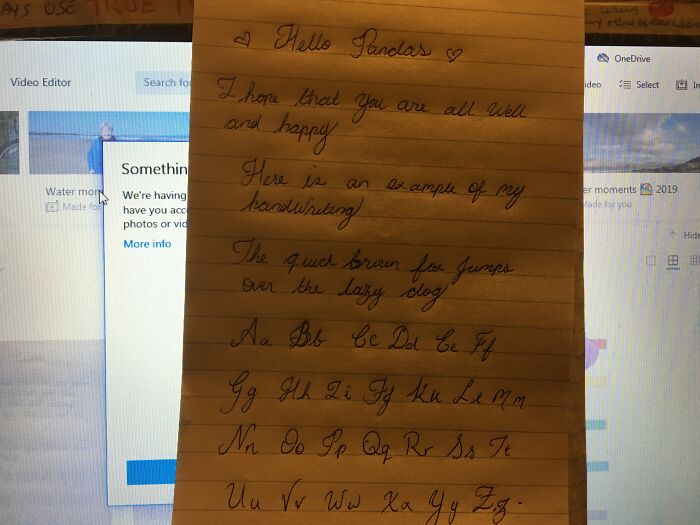 AYS USE TRUE
OneDrive
Video Editor
Search fo
ideo
Select
In
♡ Hello Pandas ♡
I hope that you are all well
and happy
Somethin
Water mom
er moments 2019
Made for
Made for you
We're having
have you acc
photos or vid
More info
Here is an example of my
handwriting
Hide
The quick brown fox jumps
over the lazy dog
Aa Bb Cc Dd Ee Ff
Gg Hh Ii Jj Kk Ll Mm
Nn Oo Pp Qq Rr Ss Tt
Uu Vv Ww Xx Yy Zz.